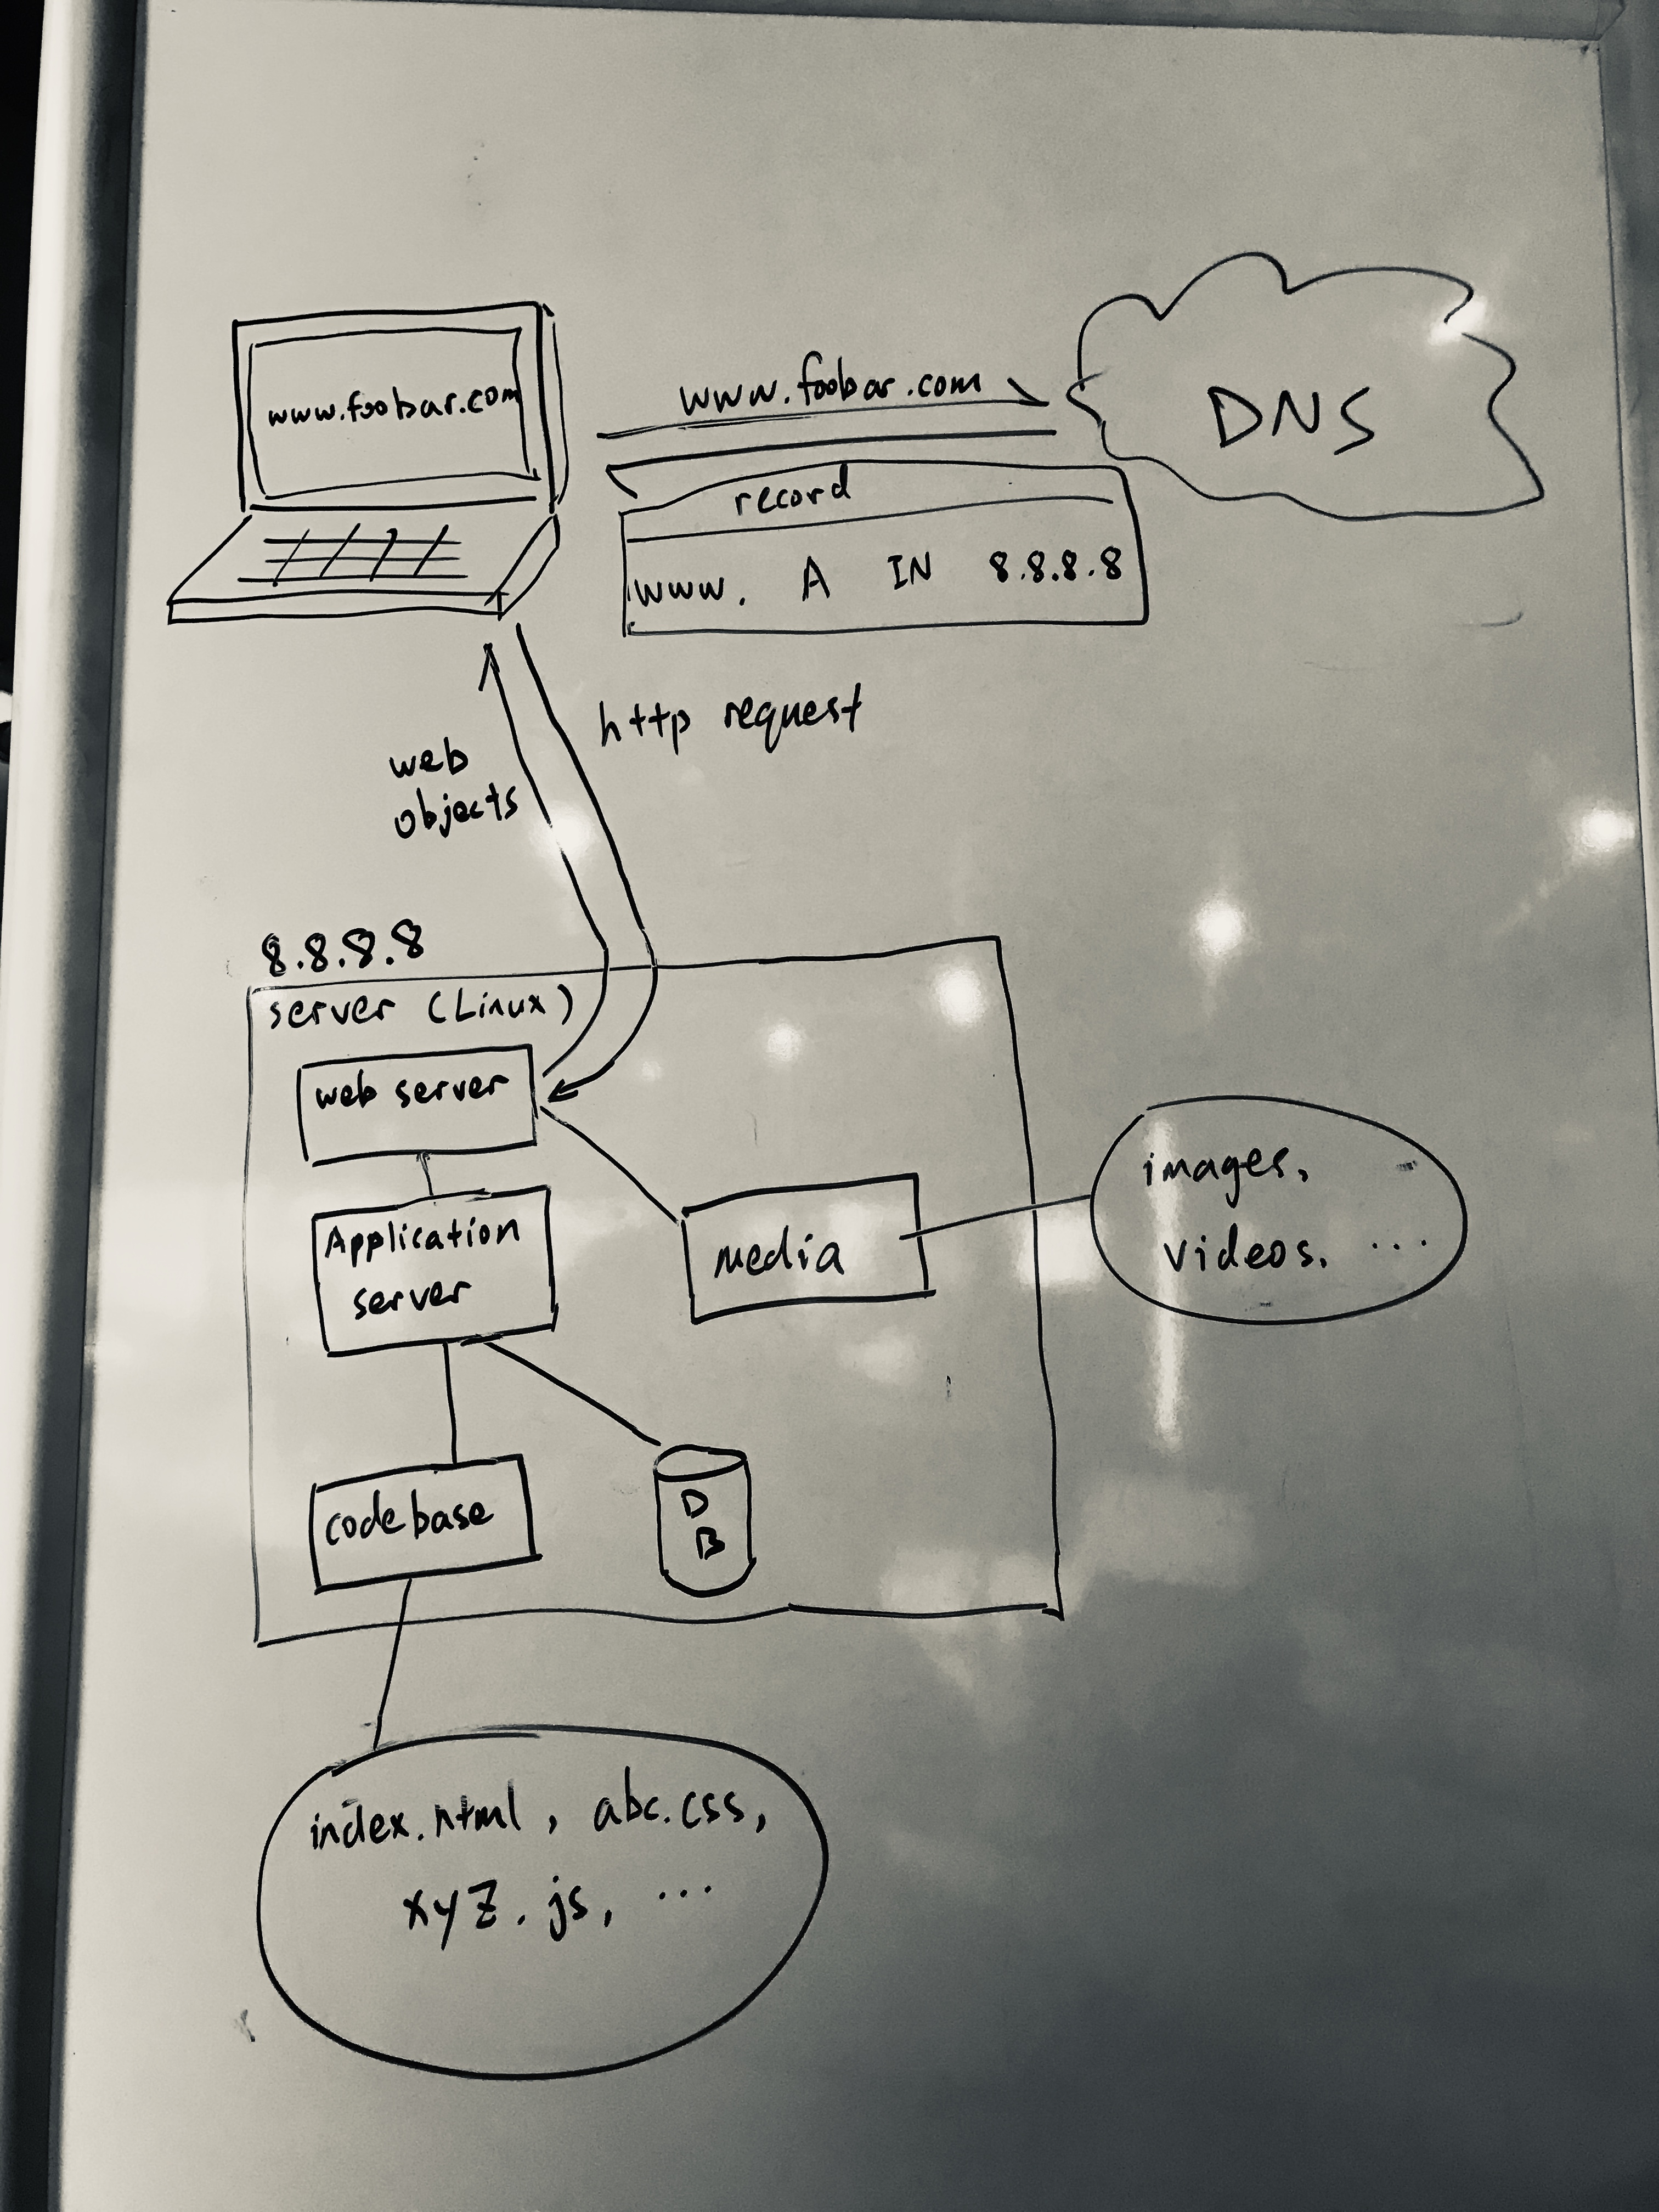 www.foobar.com
www.foobar.com
DNS
record
www. A IN 8.8.8.8
http request
web
objects
8.8.8.8
server (Linux)
web server
Application
server
media
images,
videos, ...
codebase
D
B
index.html, abc.css,
xyz.js, ...